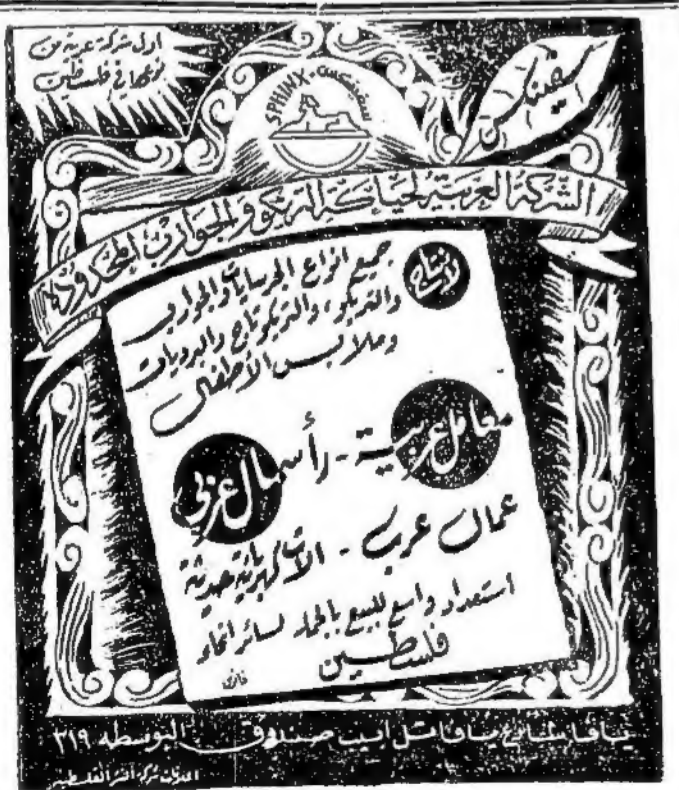 اول شركة عربية من
نوعها في فلسطين
سفينكس
SPHINX سفنكس
الشركة العربية لحياكة التريكو والجوارب المحدودة
لانتاج
جميع انواع الجرسايات والجوارب
والتريكو، والتريكوتاج والبروديات
وملابس الأطفال
معامل عربية - رأسمال عربي
عمال عرب - الات كهربائية حديثة
استعداد واسع للبيع بالجملة لسائر انحاء
فلسطين
يافا شارع يافا تل ابيب صندوق البوسطه ٣١٩